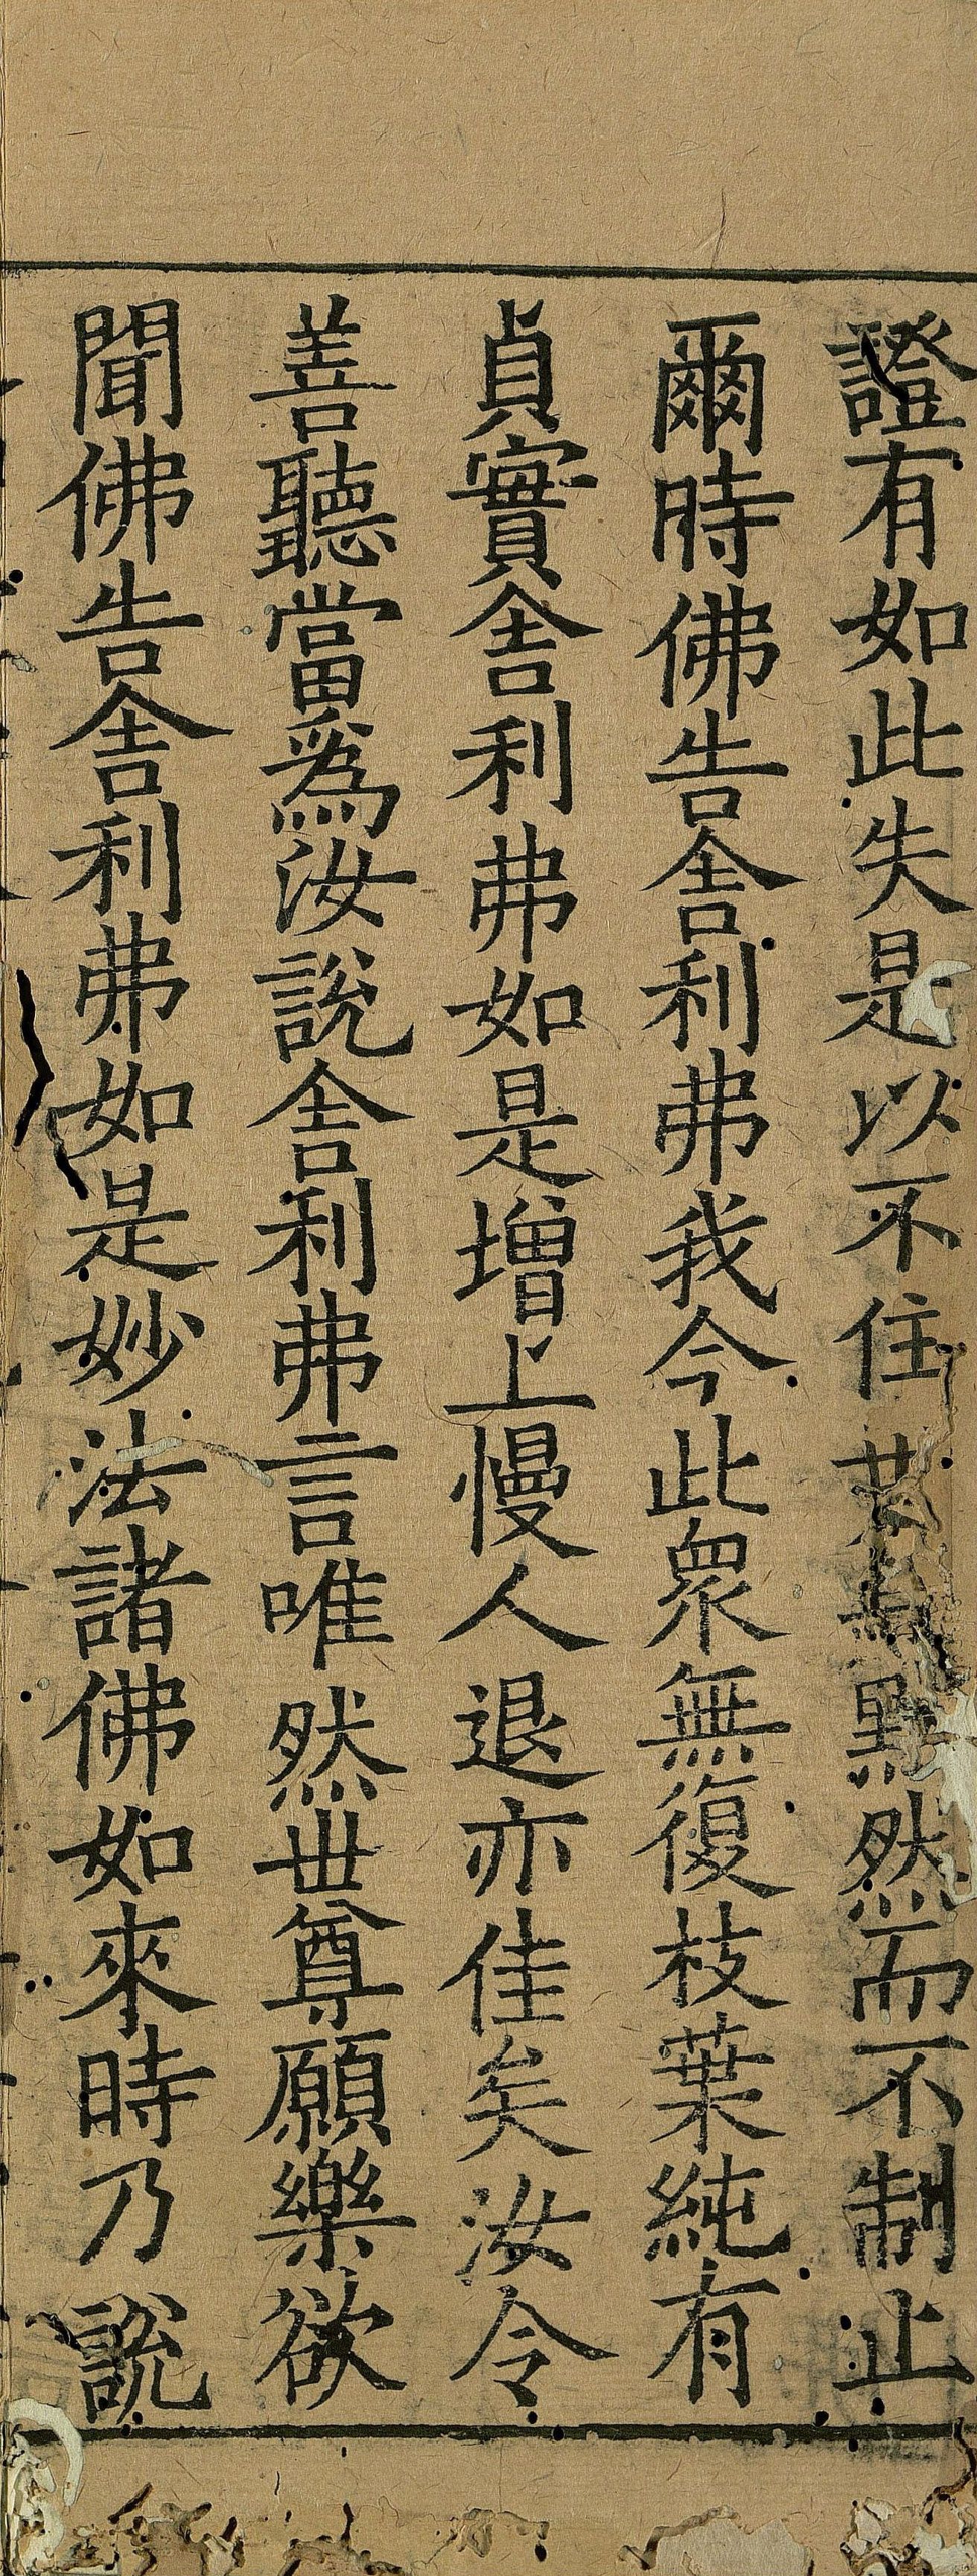 證有如此失是以不住默然而不制止
爾時佛告舍利弗我今此衆無復枝葉純有
貞實舍利弗如是增上慢人退亦佳矣汝今
善聽當爲汝說舍利弗言唯然世尊願樂欲
聞佛告舍利弗如是妙法諸佛如來時乃說